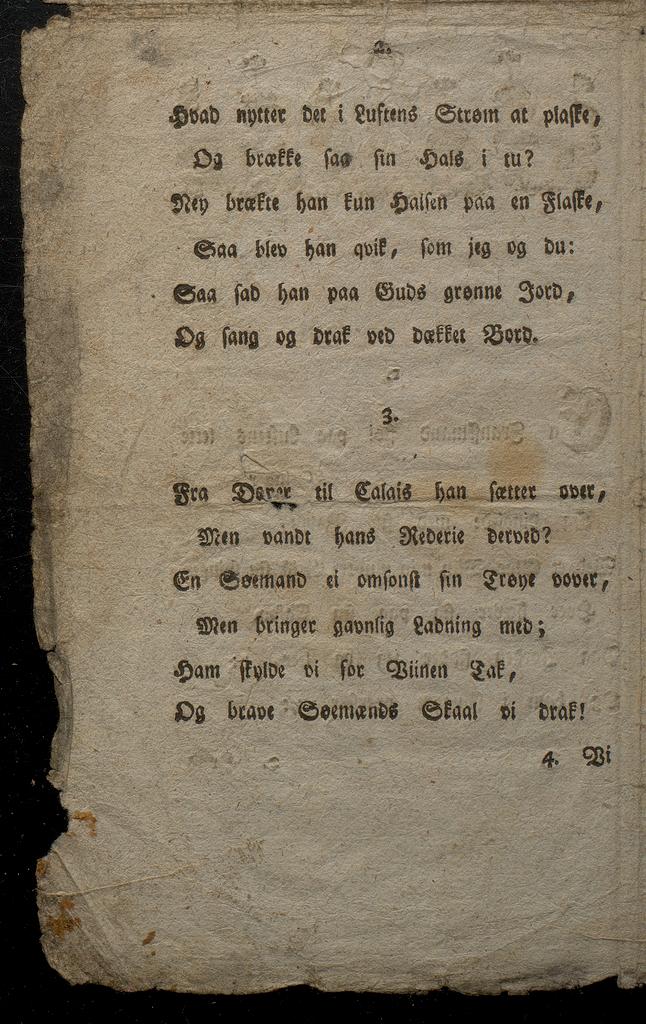 2.
Hvad nytter det i Luftens Strøm at plaske,
Og brække saa sin Hals i tu?
Ney brækte han kun Halsen paa en Flaske,
Saa blev han qvik, som jeg og du:
Saa sad han paa Guds grønne Jord,
Og sang og drak ved dækket Bord.
3.
Fra Dover til Calais han sætter over,
Men vandt hans Rederie derved?
En Søemand ei omsonst sin Trøye vover,
Men bringer gavnlig Ladning med;
Ham skylde vi for Viinen Tak,
Og brave Søemænds Skaal vi drak!
4. Vi